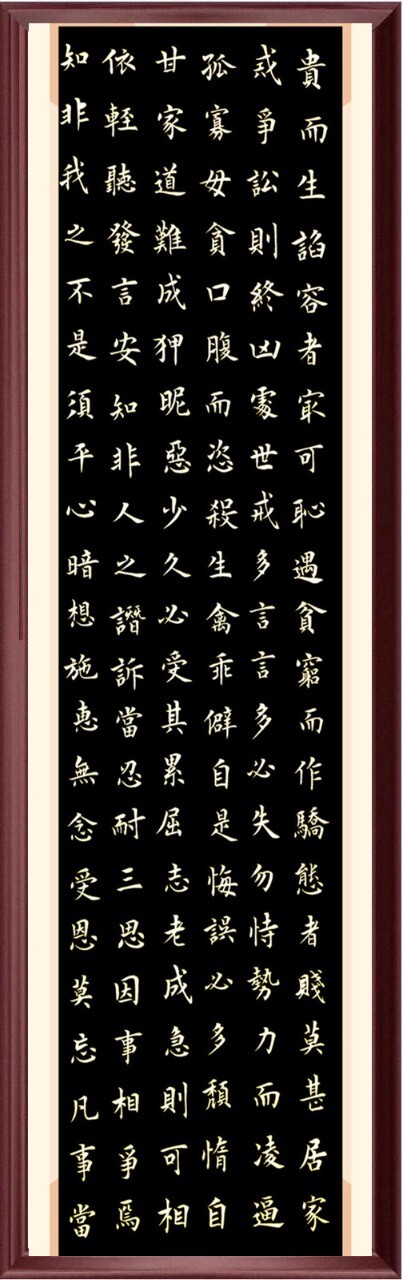 貴而生諂容者㝡可恥遇貧窮而作驕態者賤莫甚居家
戒爭訟則終凶處世戒多言言多必失勿恃勢力而凌逼
孤寡毋貪口腹而恣殺生禽乖僻自是悔誤必多頹惰自
甘家道難成狎昵惡少久必受其累屈志老成急則可相
依輕聽發言安知非人之譖訴當忍耐三思因事相爭焉
知非我之不是須平心暗想施惠無念受恩莫忘凡事當